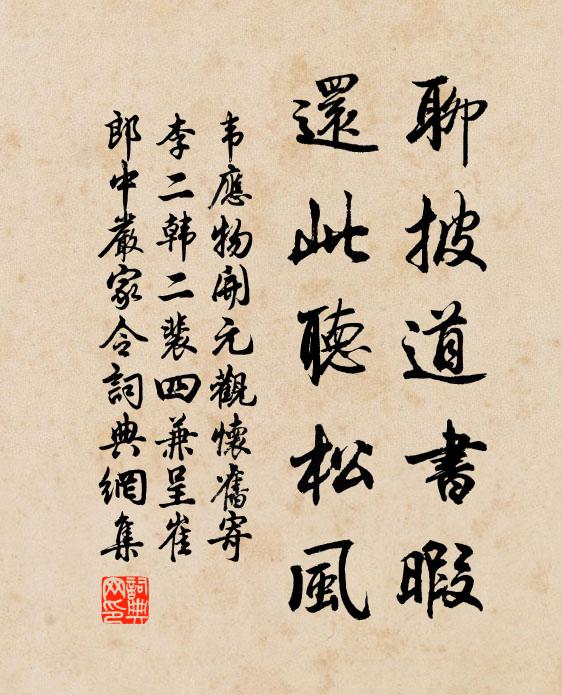 聊披道書暇
還此聽松風
韦應物開元觀懷舊寄
李二韩二裴四兼呈崔
郎中嚴家令詞典網集
詞典
网印